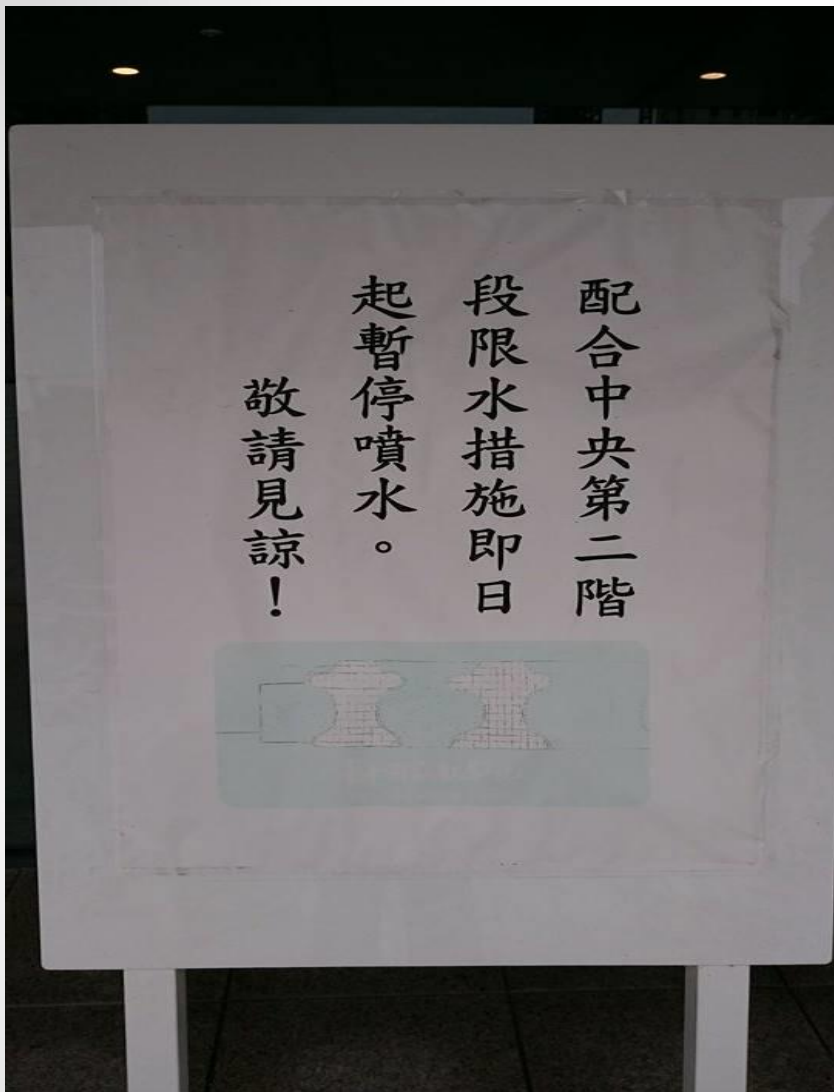 配合中央第二階
段限水措施即日
起暫停噴水。
敬請見諒！